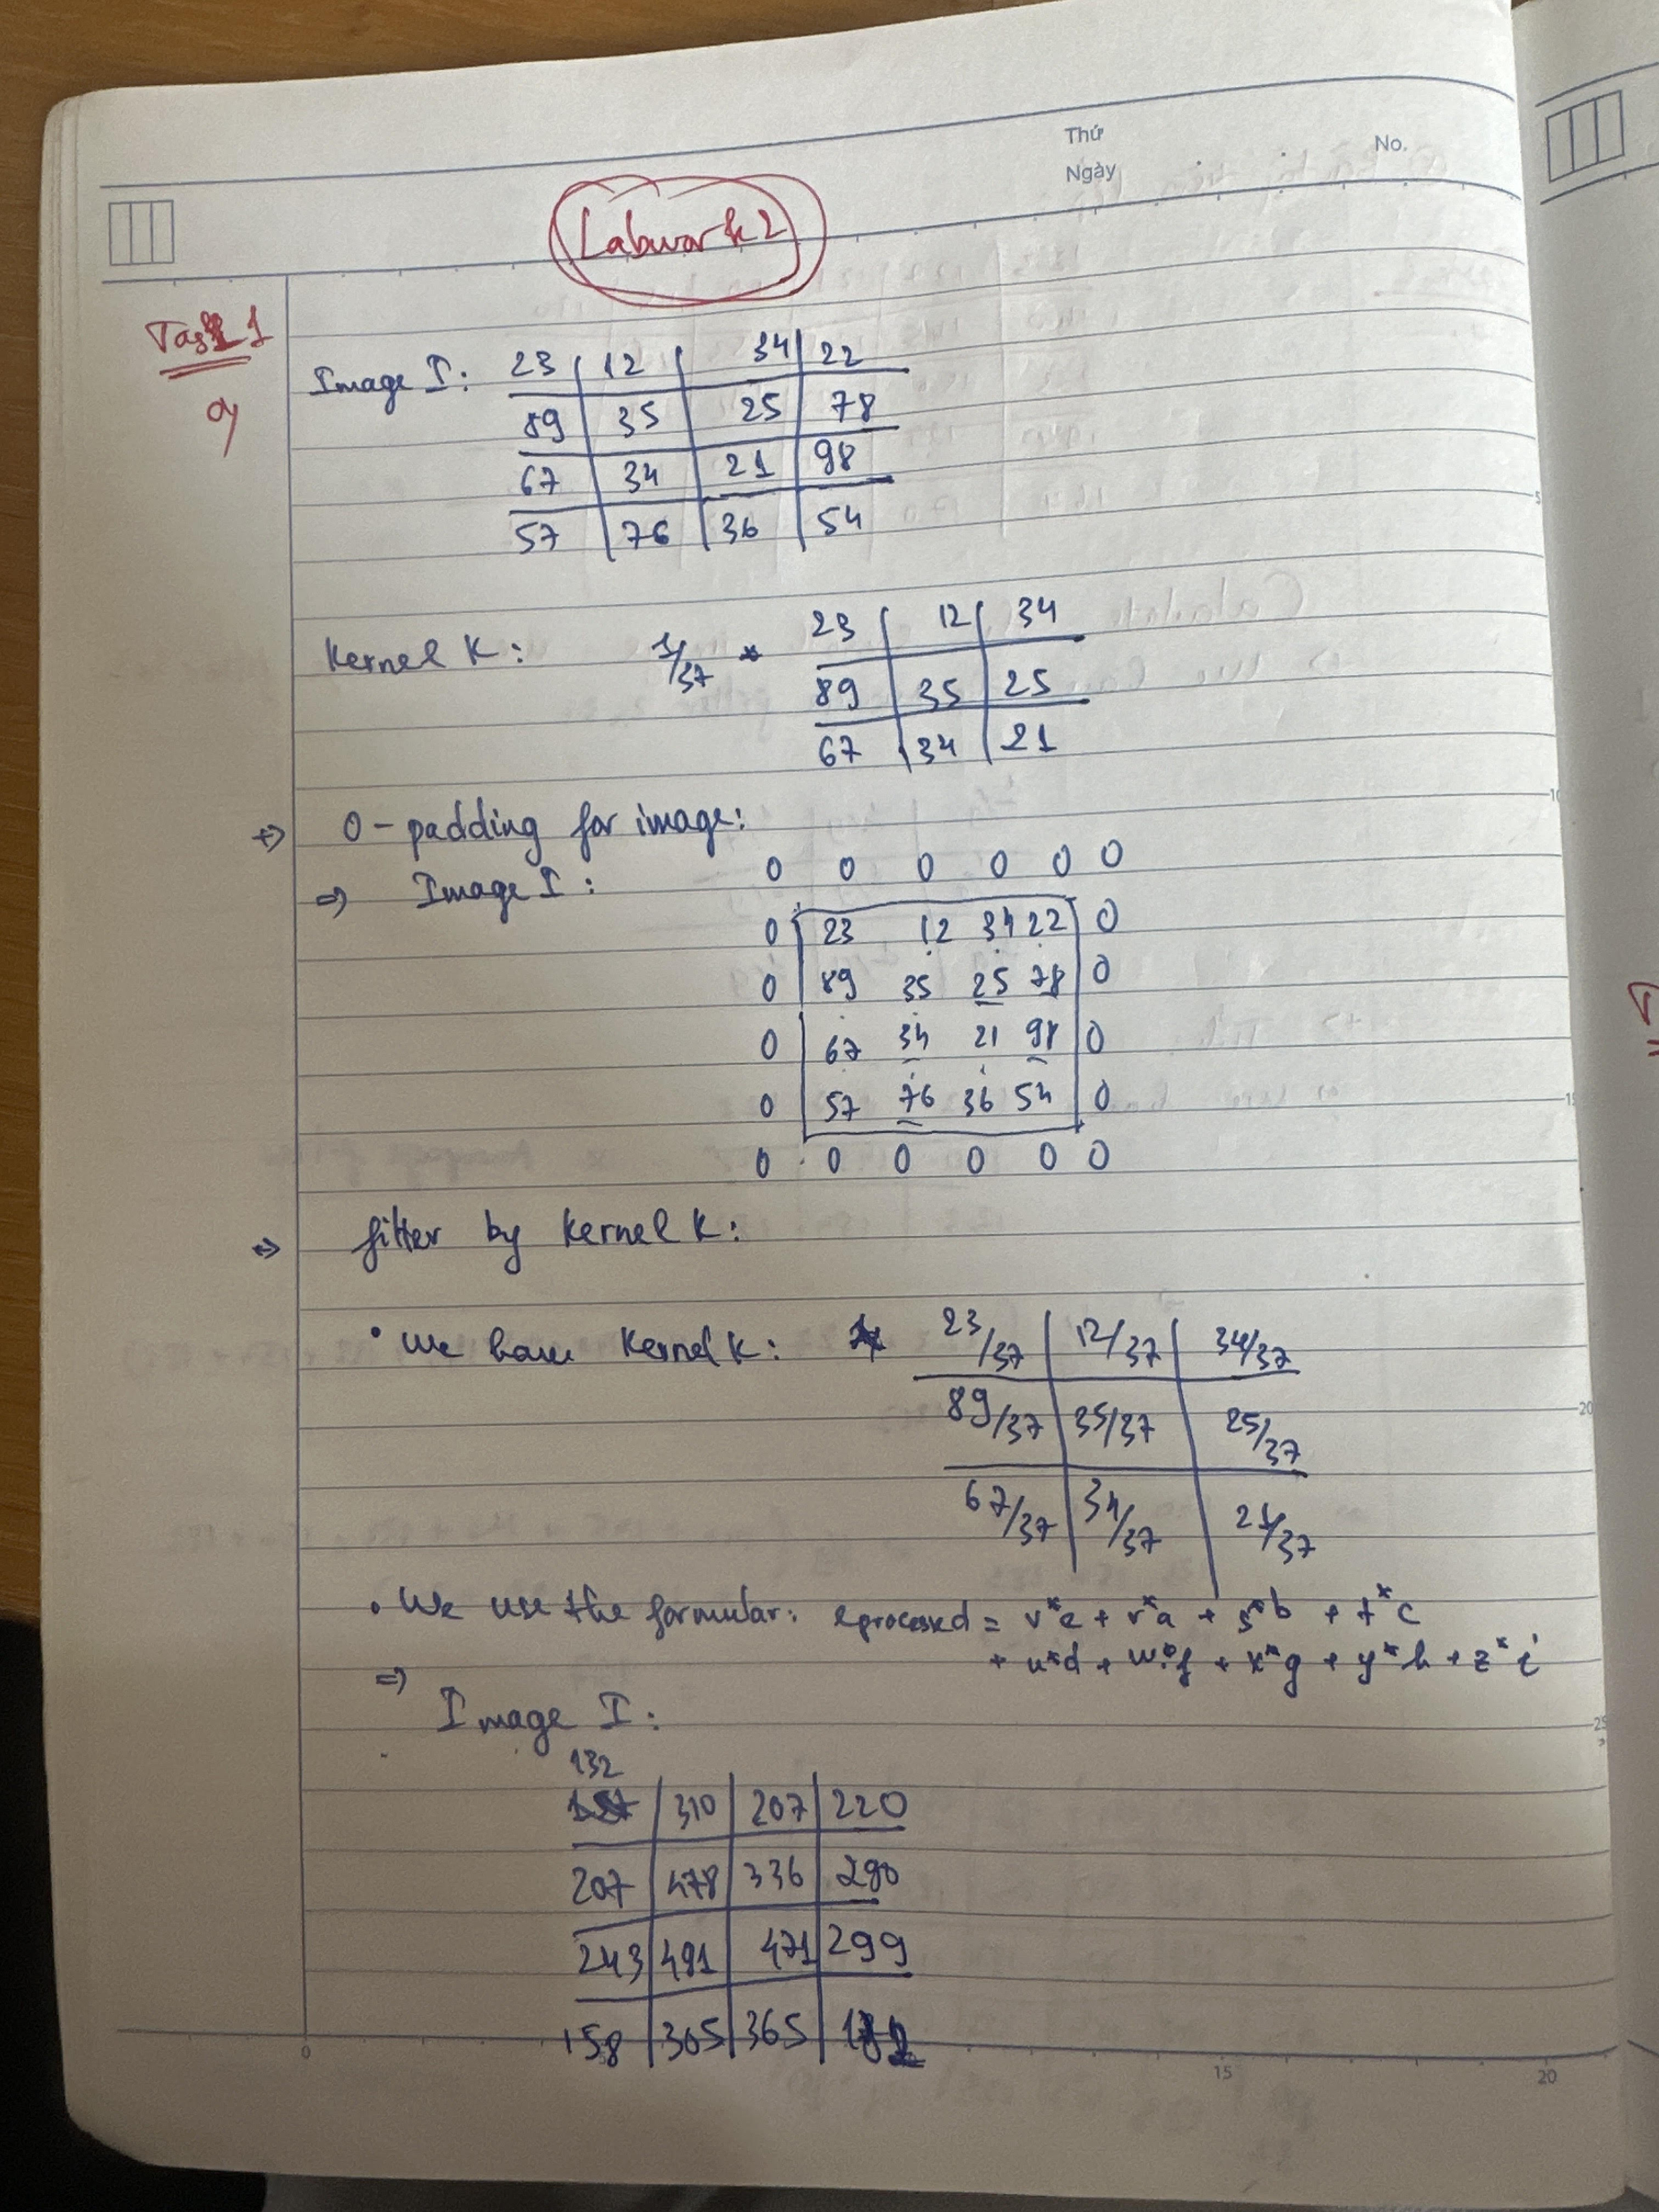 Thứ
Ngày
No.
Labwork 2
Task 1
a)
Image I: 23 12 34 22
89 35 25 78
67 34 21 98
57 76 36 54
Kernel K: 1/37 * 23 12 34
89 35 25
67 34 21
=> 0 - padding for image:
=> Image I: 0 0 0 0 0 0
0 23 12 34 22 0
0 89 35 25 78 0
0 67 34 21 98 0
0 57 76 36 54 0
0 0 0 0 0 0
=> filter by kernel K:
• We have Kernel K: 23/37 12/37 34/37
89/37 35/37 25/37
67/37 34/37 21/37
• We use the formular: eprocessed = v*e + r*a + s*b + t*c
+ u*d + w*f + x*g + y*h + z*i
=>
Image I:
132 310 207 220
207 478 336 280
243 491 471 299
158 305 365
5
10
15
20
25
0
15
20